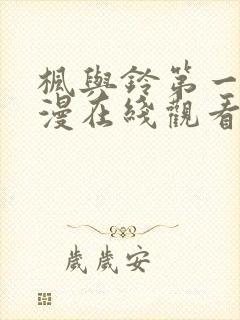 楓與鈴第一
漫在綫觀看
歲歲安